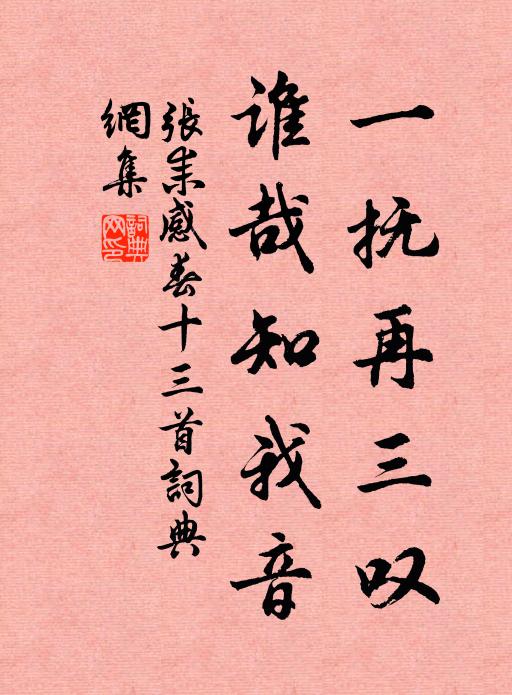 一抚再三叹
谁哉知我音
張耒感春十三首詞典
網集
詞典
网印